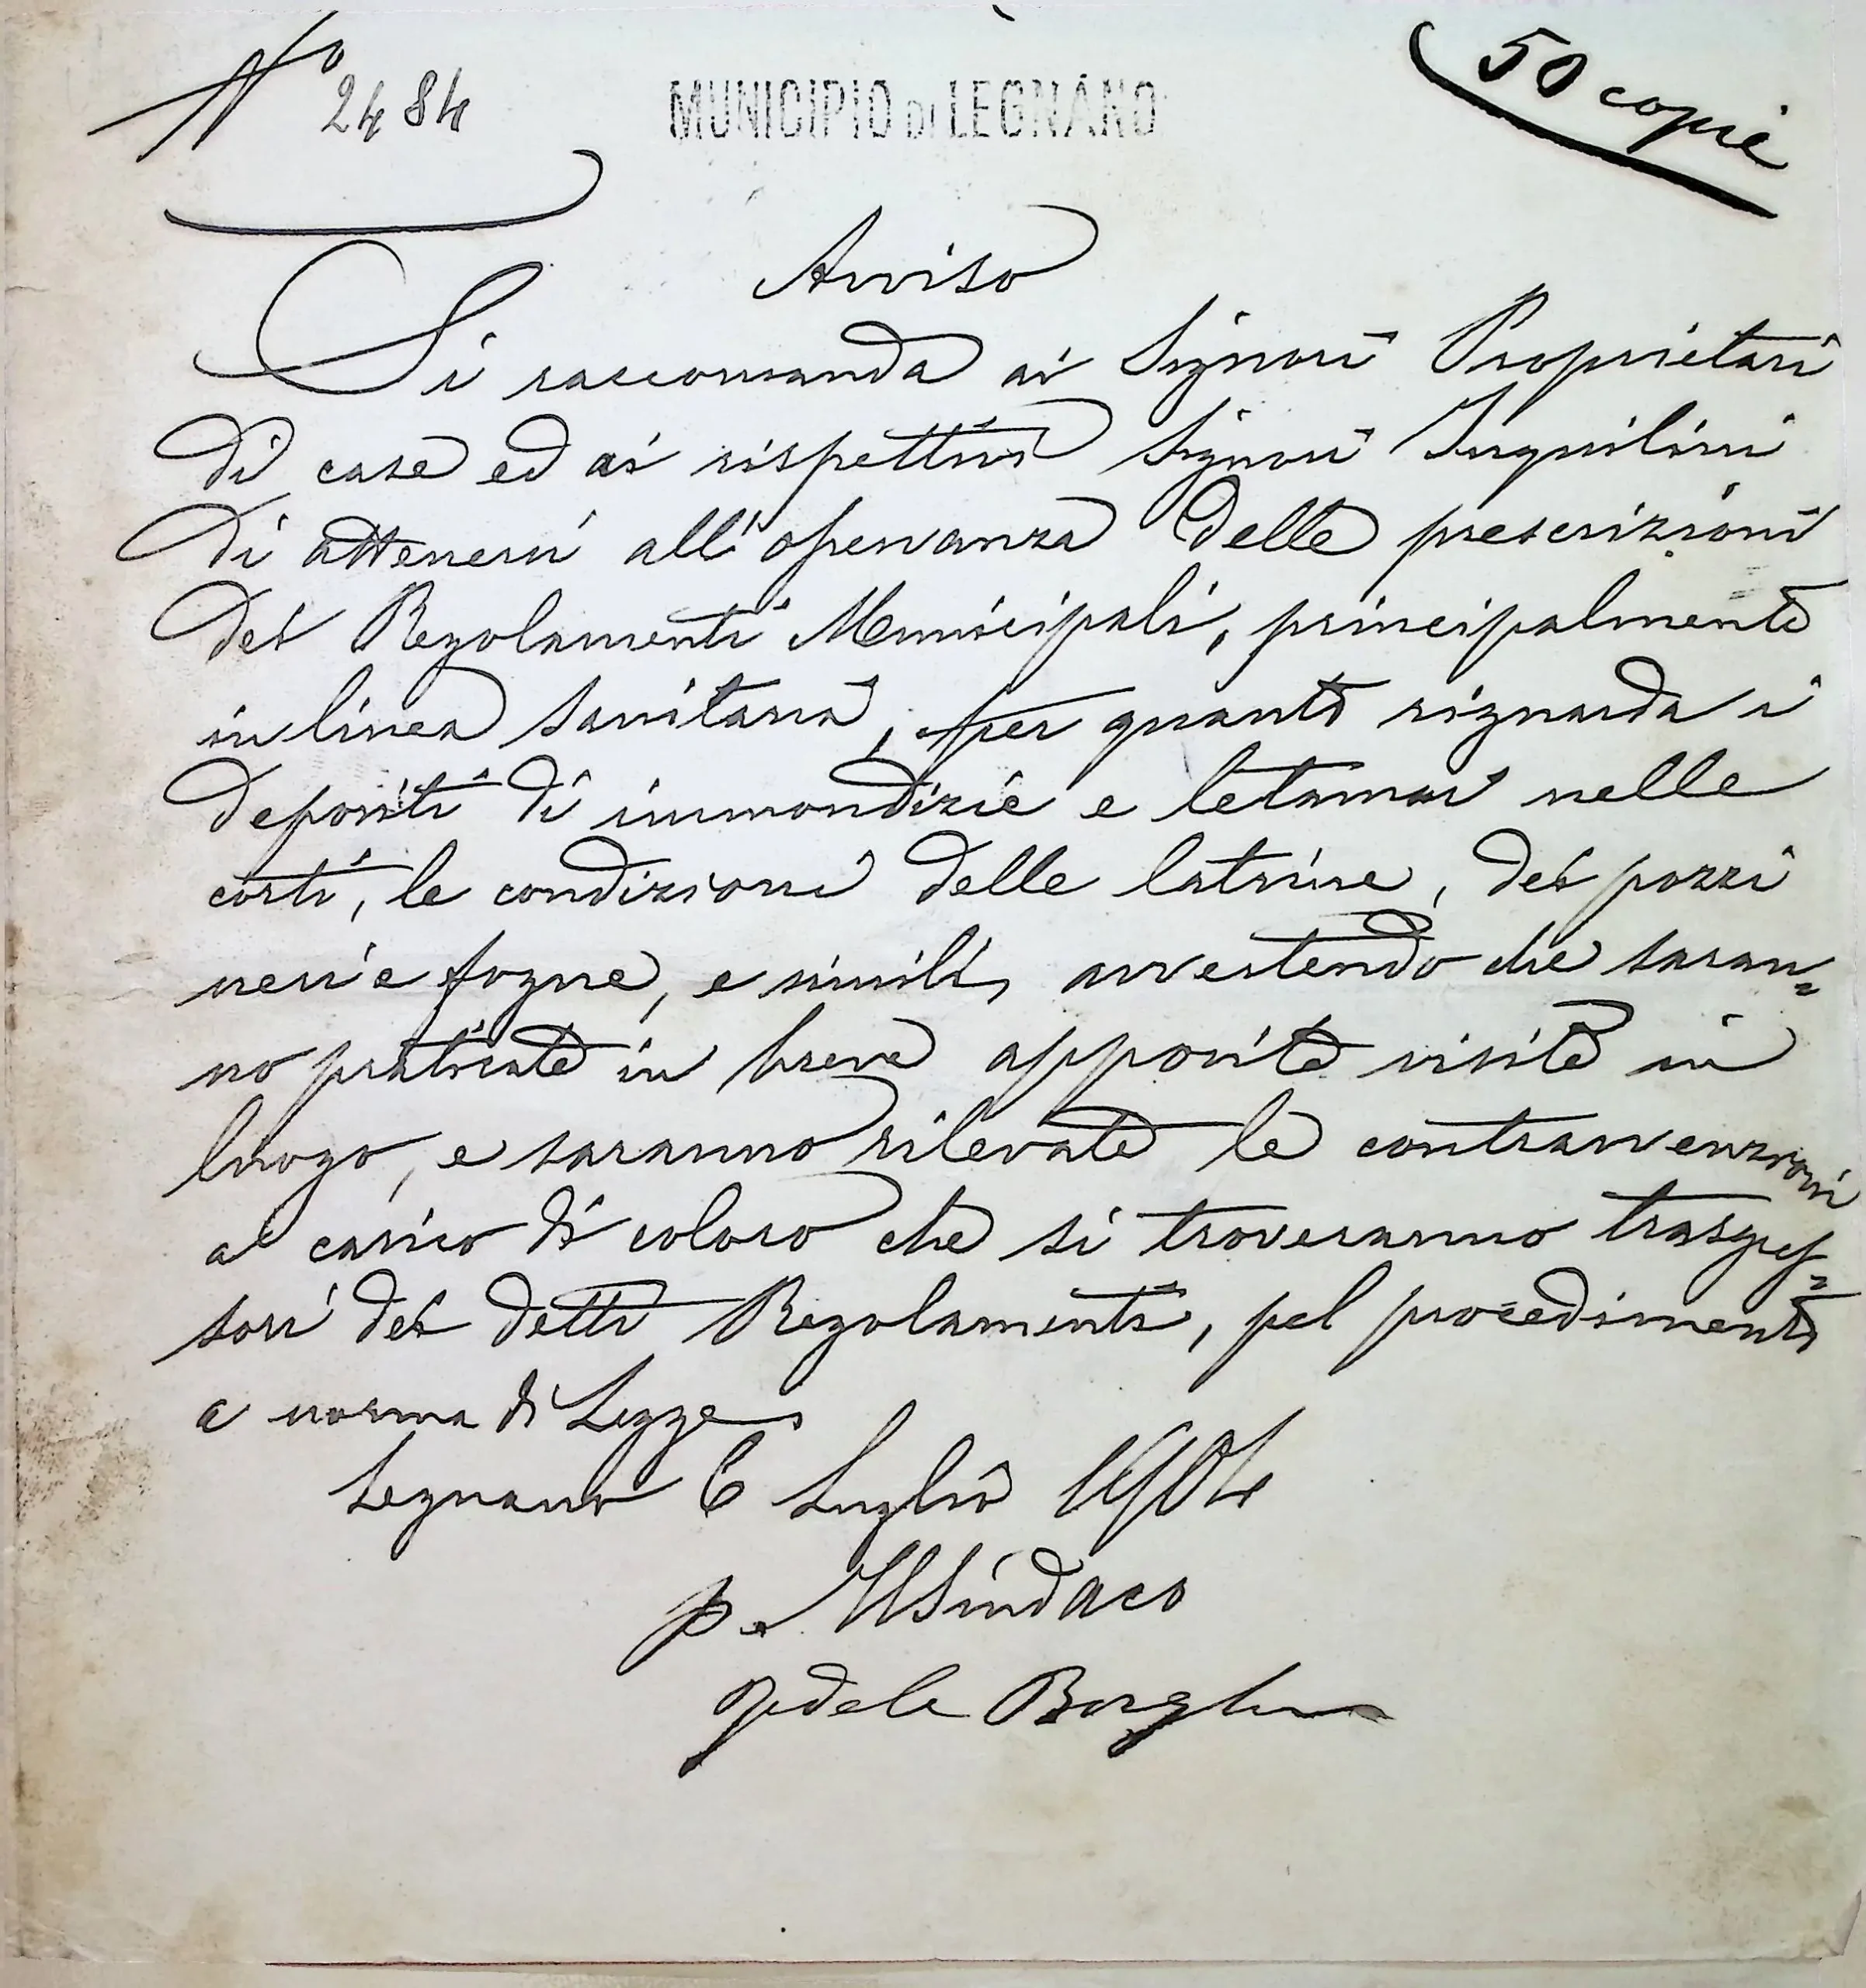 N° 2484
MUNICIPIO DI LEGNANO
50 copie
Avviso
Si raccomanda ai Signori Proprietari
di case ed ai rispettivi Signori Inquilini
di attenersi all'osservanza delle prescrizioni
dei Regolamenti Municipali, principalmente
in linea sanitaria, per quanto riguarda i
depositi di immondizie e letamai nelle
corti, le condizioni delle latrine, dei pozzi
neri e fogne, e simili, avvertendo che saran=
no praticate in breve apposite visite in
luogo, e saranno rilevate le contravvenzioni
a carico di coloro che si troveranno trasgres=
sori dei detti Regolamenti, pel procedimento
a norma di Legge
Legnano 6 Luglio 1904
p. Il Sindaco
Fedele Borghi